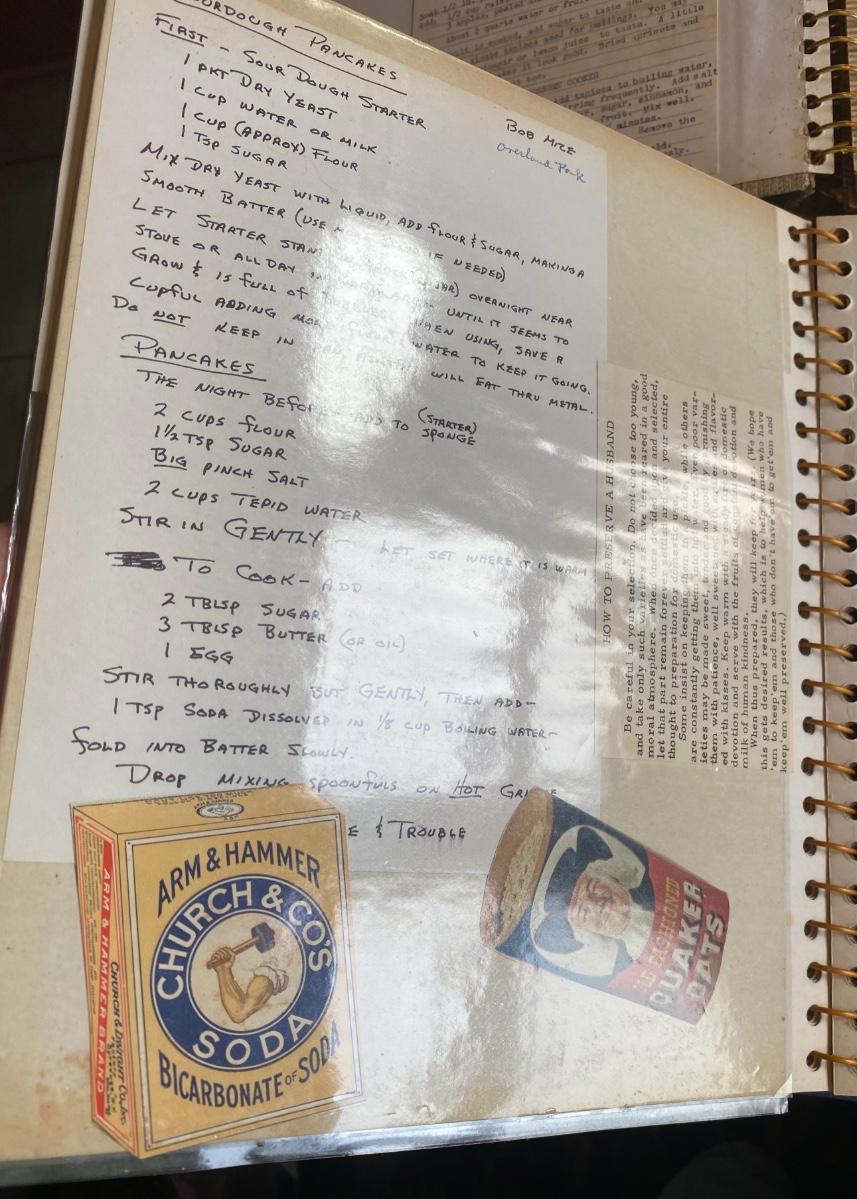 SOURDOUGH PANCAKES
FIRST - SOUR DOUGH STARTER
1 PKT DRY YEAST
1 CUP WATER OR MILK
1 CUP (APPROX) FLOUR
1 TSP SUGAR
BOB MIZE
Overland Park
MIX DRY YEAST WITH LIQUID, ADD FLOUR & SUGAR, MAKING A
SMOOTH BATTER (USE IF NEEDED)
LET STARTER STAND JAR) OVERNIGHT NEAR
STOVE OR ALL DAY IN UNTIL IT SEEMS TO
GROW & IS FULL OF BUBBLES. WHEN USING, SAVE A
CUPFUL ADDING MORE FLOUR & WATER TO KEEP IT GOING.
DO NOT KEEP IN WILL EAT THRU METAL.
PANCAKES
THE NIGHT BEFORE ADD TO (STARTER) SPONGE
2 CUPS FLOUR
1 1/2 TSP SUGAR
BIG PINCH SALT
2 CUPS TEPID WATER
STIR IN GENTLY - LET SET WHERE IT IS WARM
TO COOK - ADD
2 TBLSP SUGAR
3 TBLSP BUTTER (OR OIL)
1 EGG
STIR THOROUGHLY BUT GENTLY, THEN ADD -
1 TSP SODA DISSOLVED IN 1/8 CUP BOILING WATER -
FOLD INTO BATTER SLOWLY.
DROP MIXING SPOONFULS ON HOT
& TROUBLE
HOW TO PRESERVE A HUSBAND
Be careful in your selection. Do not choose too young,
and take only such varieties as have been reared in a good
moral atmosphere. When once decided upon and selected,
let that part remain forever settled and give your entire
thought to preparation for domestic use.
Some insist on keeping them in a pickle, while others
are constantly getting them into hot water. Even poor var-
ieties may be made sweet, tender and good by garnishing
them with patience, well sweetened with smiles and flavor-
ed with kisses. Keep warm with a steady fire of domestic
devotion and serve with the fruits of devotion and
milk of human kindness.
When thus prepared, they will keep for years. (We hope
this gets desired results, which is to help women who have
'em to keep'em and those who don't have'em to get'em and
keep'em well preserved.)
ARM & HAMMER
CHURCH & CO'S
SODA
BICARBONATE OF SODA
ARM & HAMMER BRAND
CHURCH & DWIGHT CO. INC.
OLD FASHIONED
QUAKER
OATS